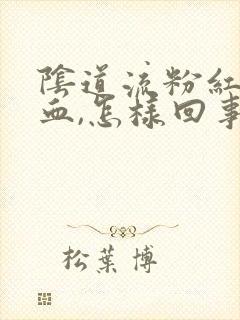 陰道流粉紅
血,怎樣回事
松葉博